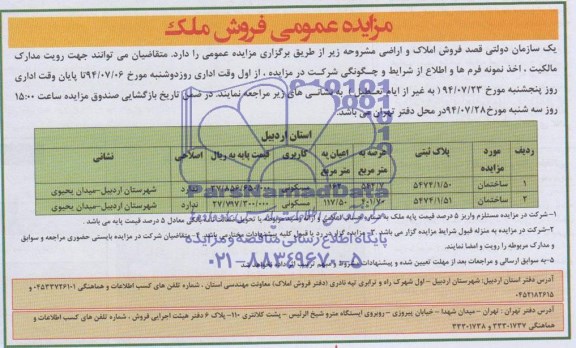 مزایده عمومی فروش ملک
یک سازمان دولتی قصد فروش املاک و اراضی مشروحه زیر از طریق برگزاری مزایده عمومی را دارد. متقاضیان می توانند جهت رویت مدارک
مالکیت ، اخذ نمونه فرم ها و اطلاع از شرایط و چگونگی شرکت در مزایده ، از اول وقت اداری روزدوشنبه مورخ ۹۴/۰۷/۰۶تا پایان وقت اداری
روز پنجشنبه مورخ ۹۴/۰۷/۲۳ ( به غیر از ایام تعطیل ) به نشانی های زیر مراجعه نمایند. در ضمن تاریخ بازگشایی صندوق مزایده ساعت ۱۵:۰۰
روز سه شنبه مورخ۹۴/۰۷/۲۸در محل دفتر تهران می باشد.
استان اردبیل
ردیف مورد مزایده پلاک ثبتی عرصه به متر مربع اعیان به متر مربع کاربری قیمت پایه به ریال اصلاحی نشانی
۱ ساختمان ۵۴۷۴/۱/۵۰ مسکونی ندارد شهرستان اردبیل-میدان یحیوی
۲ ساختمان ۵۴۷۴/۱/۵۱ ۱۱۷/۵۰ مسکونی ۲۷/۷۹۷/۳۰۰/۰۰۰ ندارد شهرستان اردبیل-میدان یحیوی
ParsNamadData
پایگاه اطلاع رسانی مناقصه و مزایده
۰۲۱-۸۸۳۴۹۶۷۰-۵
۱-شرکت در مزایده مستلزم واریز ۵ درصد قیمت پایه ملک به معادل ۵ درصد قیمت پایه می باشد.
۲-شرکت در مزایده به منزله قبول شرایط مزایده گزار می باشد. ۳- مزایده گزار در رد یا قبول کلیه پیشنهادات مختار می باشد. ۴-متقاضیان شرکت در مزایده بایستی حضوری مراجعه و سوابق
و مدارک مربوطه را رویت و امضا نمایند.
۵-به سوابق ارسالی و مراجعات بعد از مهلت تعیین شده و پیشنهادات
آدرس دفتر استان اردبیل: شهرستان اردبیل - اول شهرک راه و ترابری تپه نادری (دفتر فروش املاک) معاونت مهندسی استان ، شماره تلفن های کسب اطلاعات و هماهنگی ۰۴۵۳۳۷۲۶۱۰۱ و
۰۴۵۲۱۸۲۶۱۵
آدرس دفتر تهران : تهران - میدان شهدا - خیابان پیروزی - روبروی ایستگاه مترو شیخ الرئیس - پشت کلانتری ۱۱۰- پلاک ۶ دفتر هیئت اجرایی فروش . شماره تلفن های کسب اطلاعات و
هماهنگی ۳۳۳۰۱۷۳۷ و ۳۳۳۰۱۷۳۸